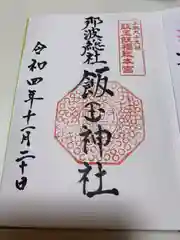 那波総社
飯玉神社
令和四年十一月二十日